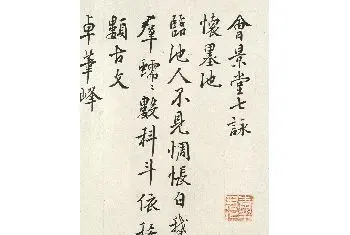 會景堂七詠
懷墨池
臨池人不見惆悵白
羣蠕〻數科斗依
類古文
卓筆峰